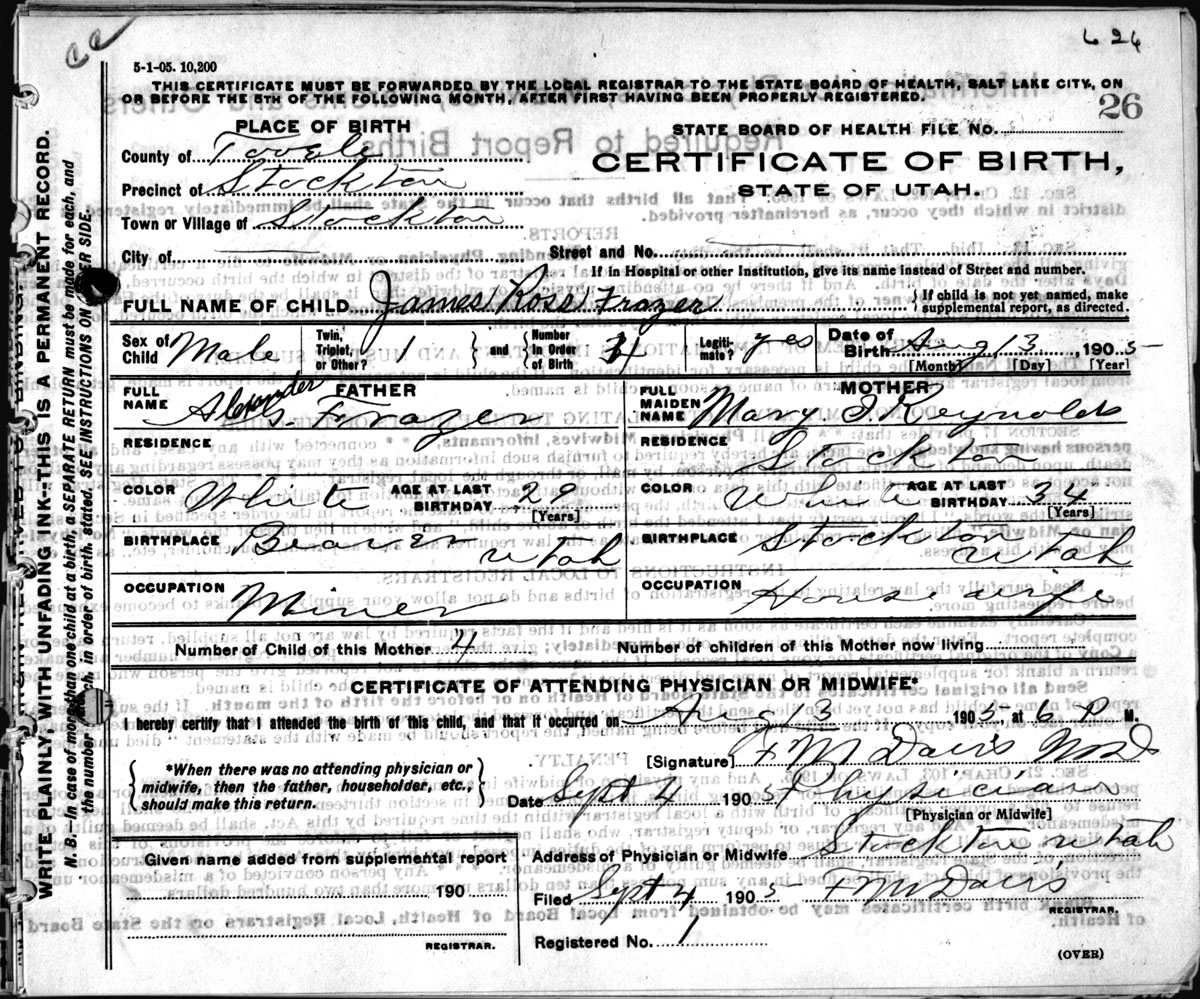 626
5-1-05. 10,200
THIS CERTIFICATE MUST BE FORWARDED BY THE LOCAL REGISTRAR TO THE STATE BOARD OF HEALTH, SALT LAKE CITY, ON
OR BEFORE THE 5TH OF THE FOLLOWING MONTH, AFTER FIRST HAVING BEEN PROPERLY REGISTERED.
PLACE OF BIRTH
STATE BOARD OF HEALTH FILE NO. 26
County of Tooele
CERTIFICATE OF BIRTH,
Precinct of Stockton
STATE OF UTAH.
Town or Village of Stockton
City of
Street and No.
If in Hospital or other Institution, give its name instead of Street and number.
FULL NAME OF CHILD James Ross Frazer
If child is not yet named, make
supplemental report, as directed.
Sex of Child Male
Twin, Triplet, or Other? 1
and Number in Order of Birth
Legiti-mate? yes
Date of Birth Aug 13, 1905
[Month] [Day] [Year]
FATHER
FULL NAME Alexander G. Frazer
MOTHER
FULL MAIDEN NAME Mary I. Reynolds
RESIDENCE
RESIDENCE Stockton
COLOR White
AGE AT LAST BIRTHDAY 29
[Years]
COLOR White
AGE AT LAST BIRTHDAY 34
[Years]
BIRTHPLACE Beaver Utah
BIRTHPLACE Stockton Utah
OCCUPATION Miner
OCCUPATION House wife
Number of Child of this Mother 4
Number of children of this Mother now living
CERTIFICATE OF ATTENDING PHYSICIAN OR MIDWIFE*
I hereby certify that I attended the birth of this child, and that it occurred on Aug 13 1905, at 6 P M.
*When there was no attending physician or
midwife, then the father, householder, etc.,
should make this return.
[Signature] F M Davis MD
Date Sept 4 1905 Physician
[Physician or Midwife]
Given name added from supplemental report
190
REGISTRAR.
Address of Physician or Midwife Stockton Utah
Filed Sept 4 1905 F M Davis
REGISTRAR.
Registered No. 1
(OVER)
WRITE PLAINLY, WITH UNFADING INK--THIS IS A PERMANENT RECORD.
N. B. In case of more than one child at a birth, a SEPARATE RETURN must be made for each, and
the number each, in order of birth, stated. SEE INSTRUCTIONS ON OTHER SIDE.